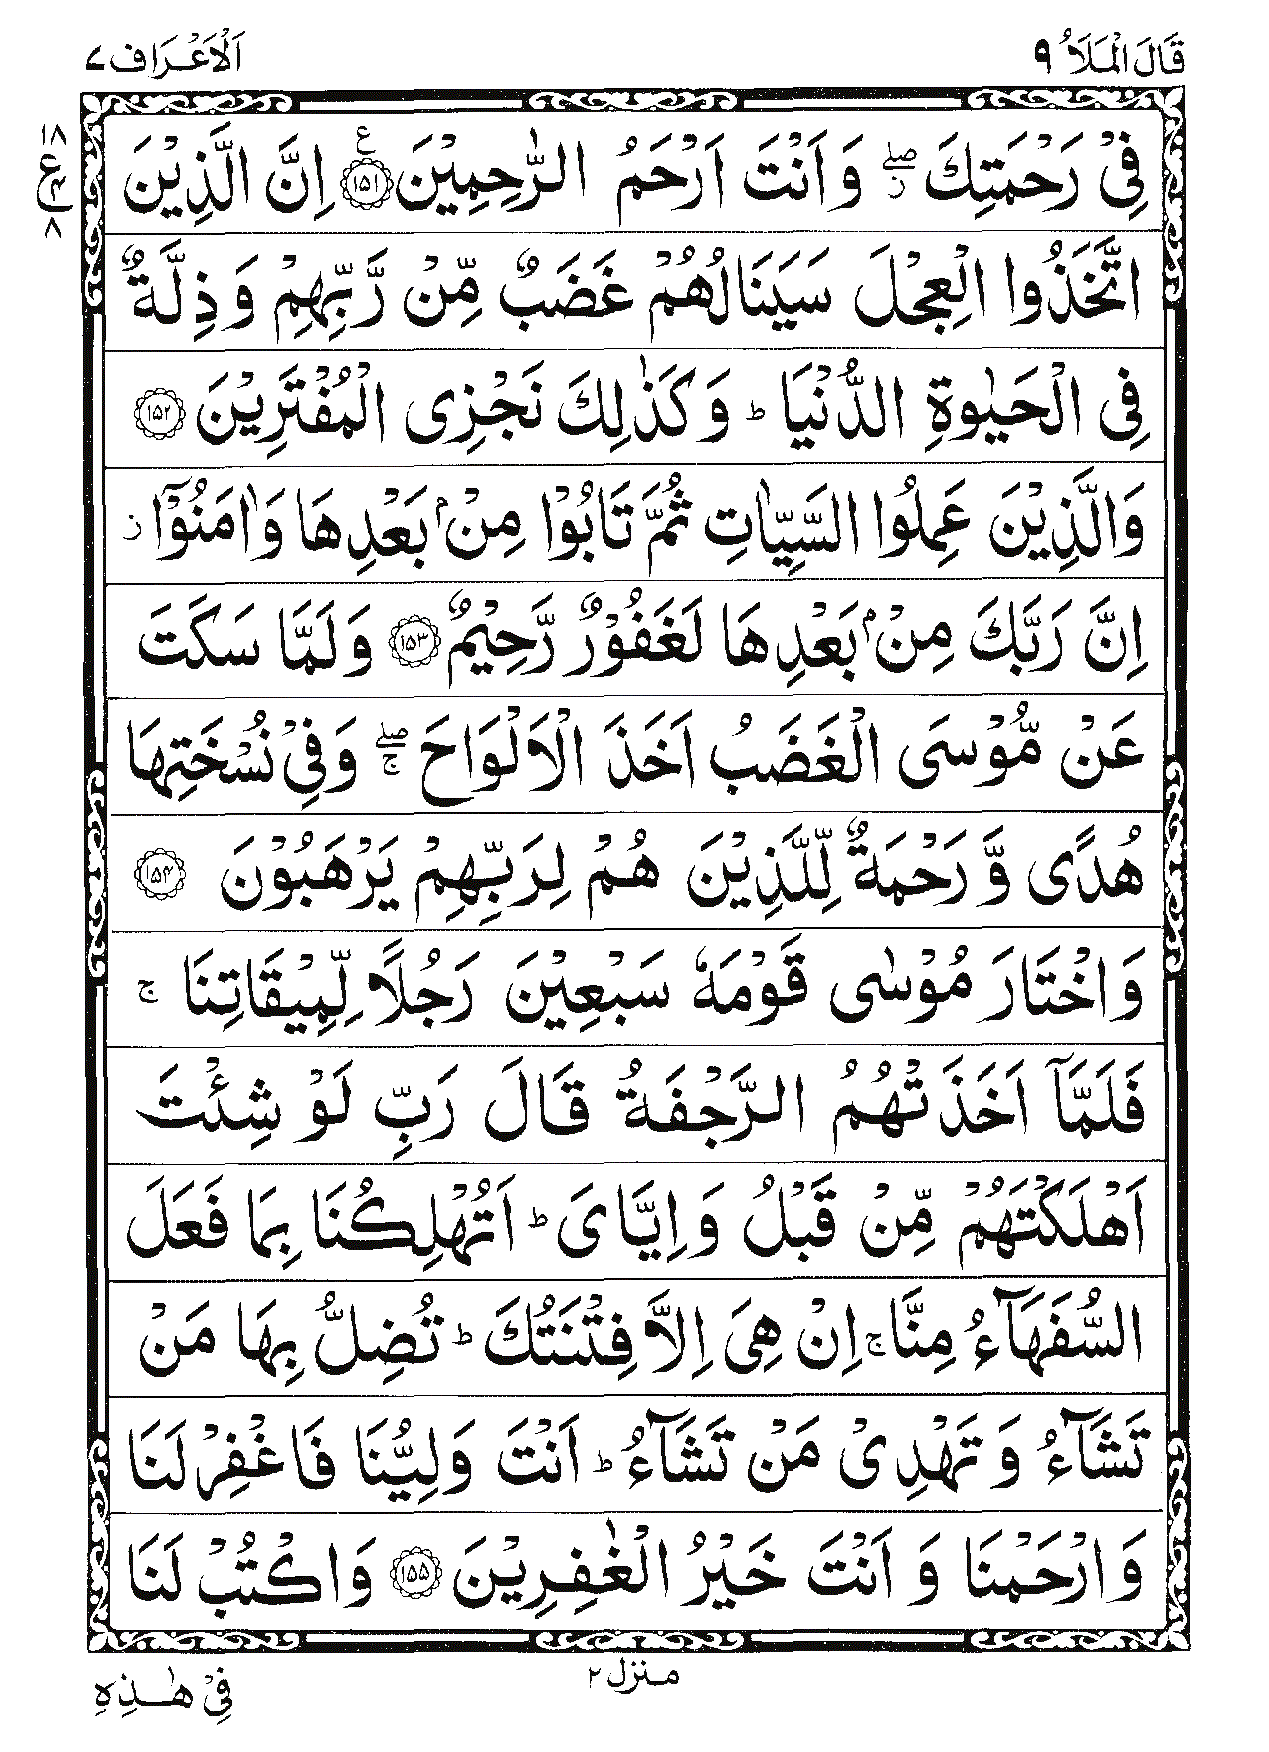 قَالَ الْمَلَاُ ٩
اَلْاَعْرَاف ٧
١٨
ع
٤
٨
فِیْ رَحْمَتِكَ ۖز وَ اَنْتَ اَرْحَمُ الرّٰحِمِیْنَ ﴿١٥١﴾ ع اِنَّ الَّذِیْنَ
اتَّخَذُوا الْعِجْلَ سَیَنَالُهُمْ غَضَبٌ مِّنْ رَّبِّهِمْ وَ ذِلَّةٌ
فِی الْحَیٰوةِ الدُّنْیَا ؕ وَ كَذٰلِكَ نَجْزِی الْمُفْتَرِیْنَ ﴿١٥٢﴾
وَالَّذِیْنَ عَمِلُوا السَّیِّاٰتِ ثُمَّ تَابُوْا مِنْۢ بَعْدِهَا وَاٰمَنُوْۤا ز
اِنَّ رَبَّكَ مِنْۢ بَعْدِهَا لَغَفُوْرٌ رَّحِیْمٌ ﴿١٥٣﴾ وَ لَمَّا سَكَتَ
عَنْ مُّوْسَی الْغَضَبُ اَخَذَ الْاَلْوَاحَ ۖج وَ فِیْ نُسْخَتِهَا
هُدًی وَّ رَحْمَةٌ لِّلَّذِیْنَ هُمْ لِرَبِّهِمْ یَرْهَبُوْنَ ﴿١٥٤﴾
وَ اخْتَارَ مُوْسٰی قَوْمَهٗ سَبْعِیْنَ رَجُلًا لِّمِیْقَاتِنَا ج
فَلَمَّاۤ اَخَذَتْهُمُ الرَّجْفَةُ قَالَ رَبِّ لَوْ شِئْتَ
اَهْلَكْتَهُمْ مِّنْ قَبْلُ وَ اِیَّایَ ؕ اَتُهْلِكُنَا بِمَا فَعَلَ
السُّفَهَآءُ مِنَّا ج اِنْ هِیَ اِلَّا فِتْنَتُكَ ؕ تُضِلُّ بِهَا مَنْ
تَشَآءُ وَ تَهْدِیْ مَنْ تَشَآءُ ؕ اَنْتَ وَلِیُّنَا فَاغْفِرْ لَنَا
وَ ارْحَمْنَا وَ اَنْتَ خَیْرُ الْغٰفِرِیْنَ ﴿١٥٥﴾ وَ اكْتُبْ لَنَا
منزل ٢
فِیْ هٰذِهِ